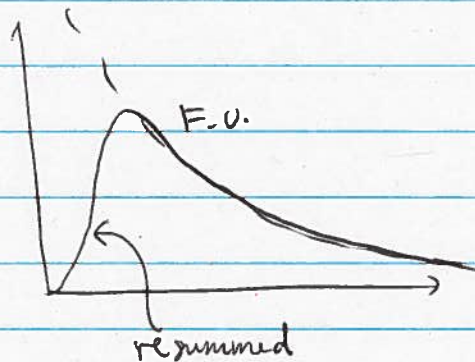 F.O.
resummed